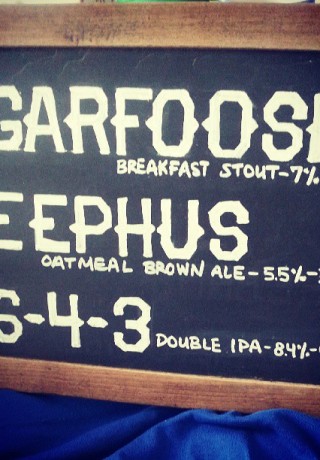 GARFOOS
BREAKFAST STOUT-7%
EEPHUS
OATMEAL BROWN ALE-5.5%-
6-4-3
DOUBLE IPA-8.4%-